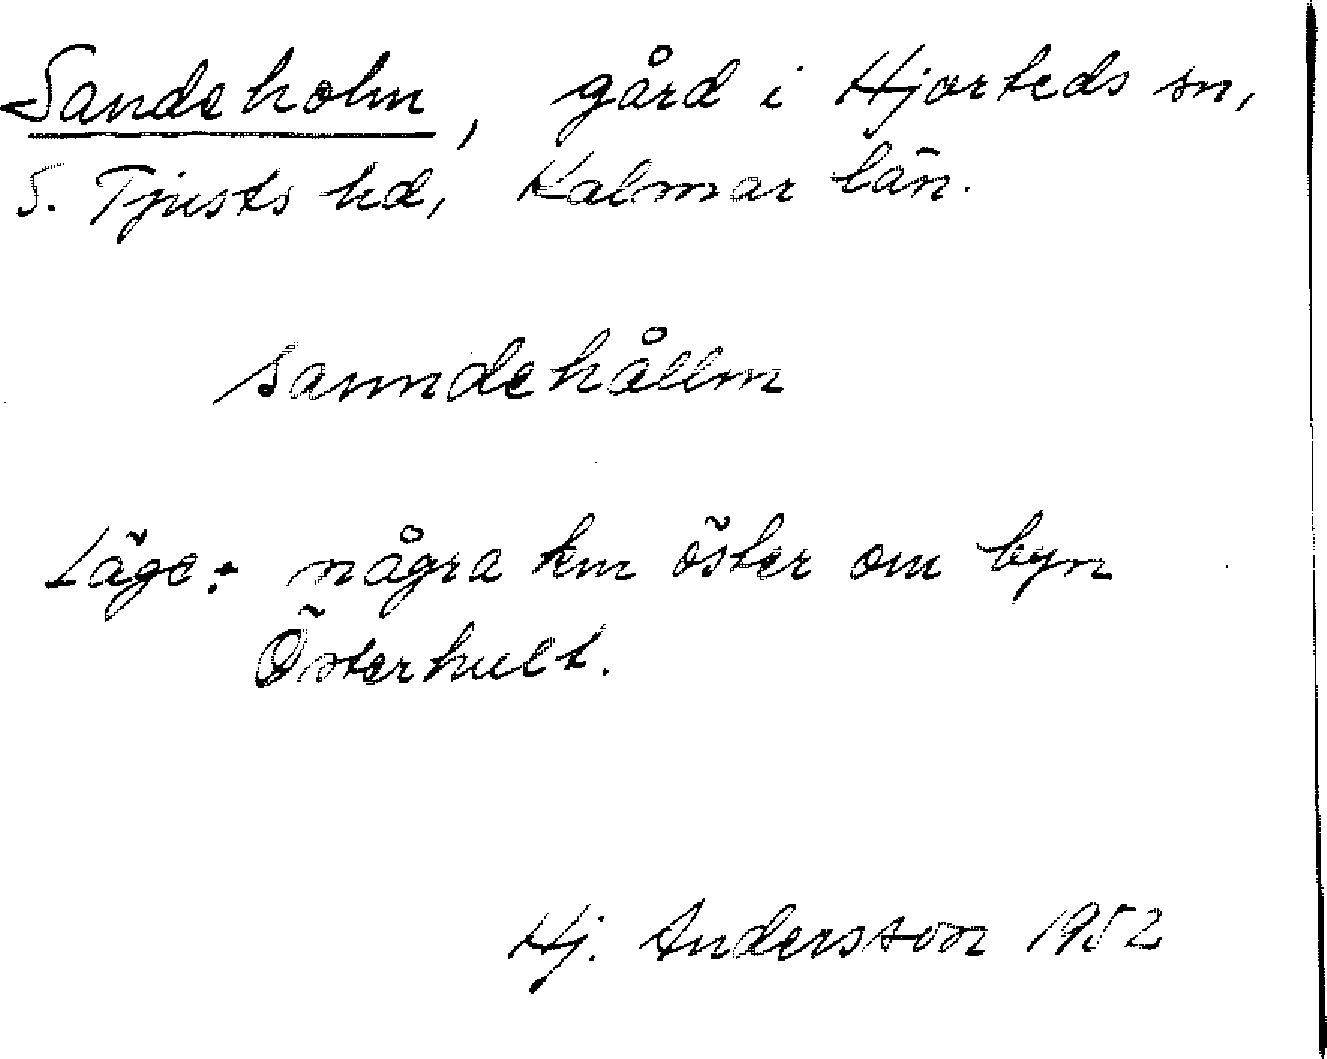 Sandeholm, gård i Hjorteds sn,
S. Tjusts hd, Kalmar län.
sanndehållm
Läge: några km öster om byn
Österhult.
Hj. Andersson 1952